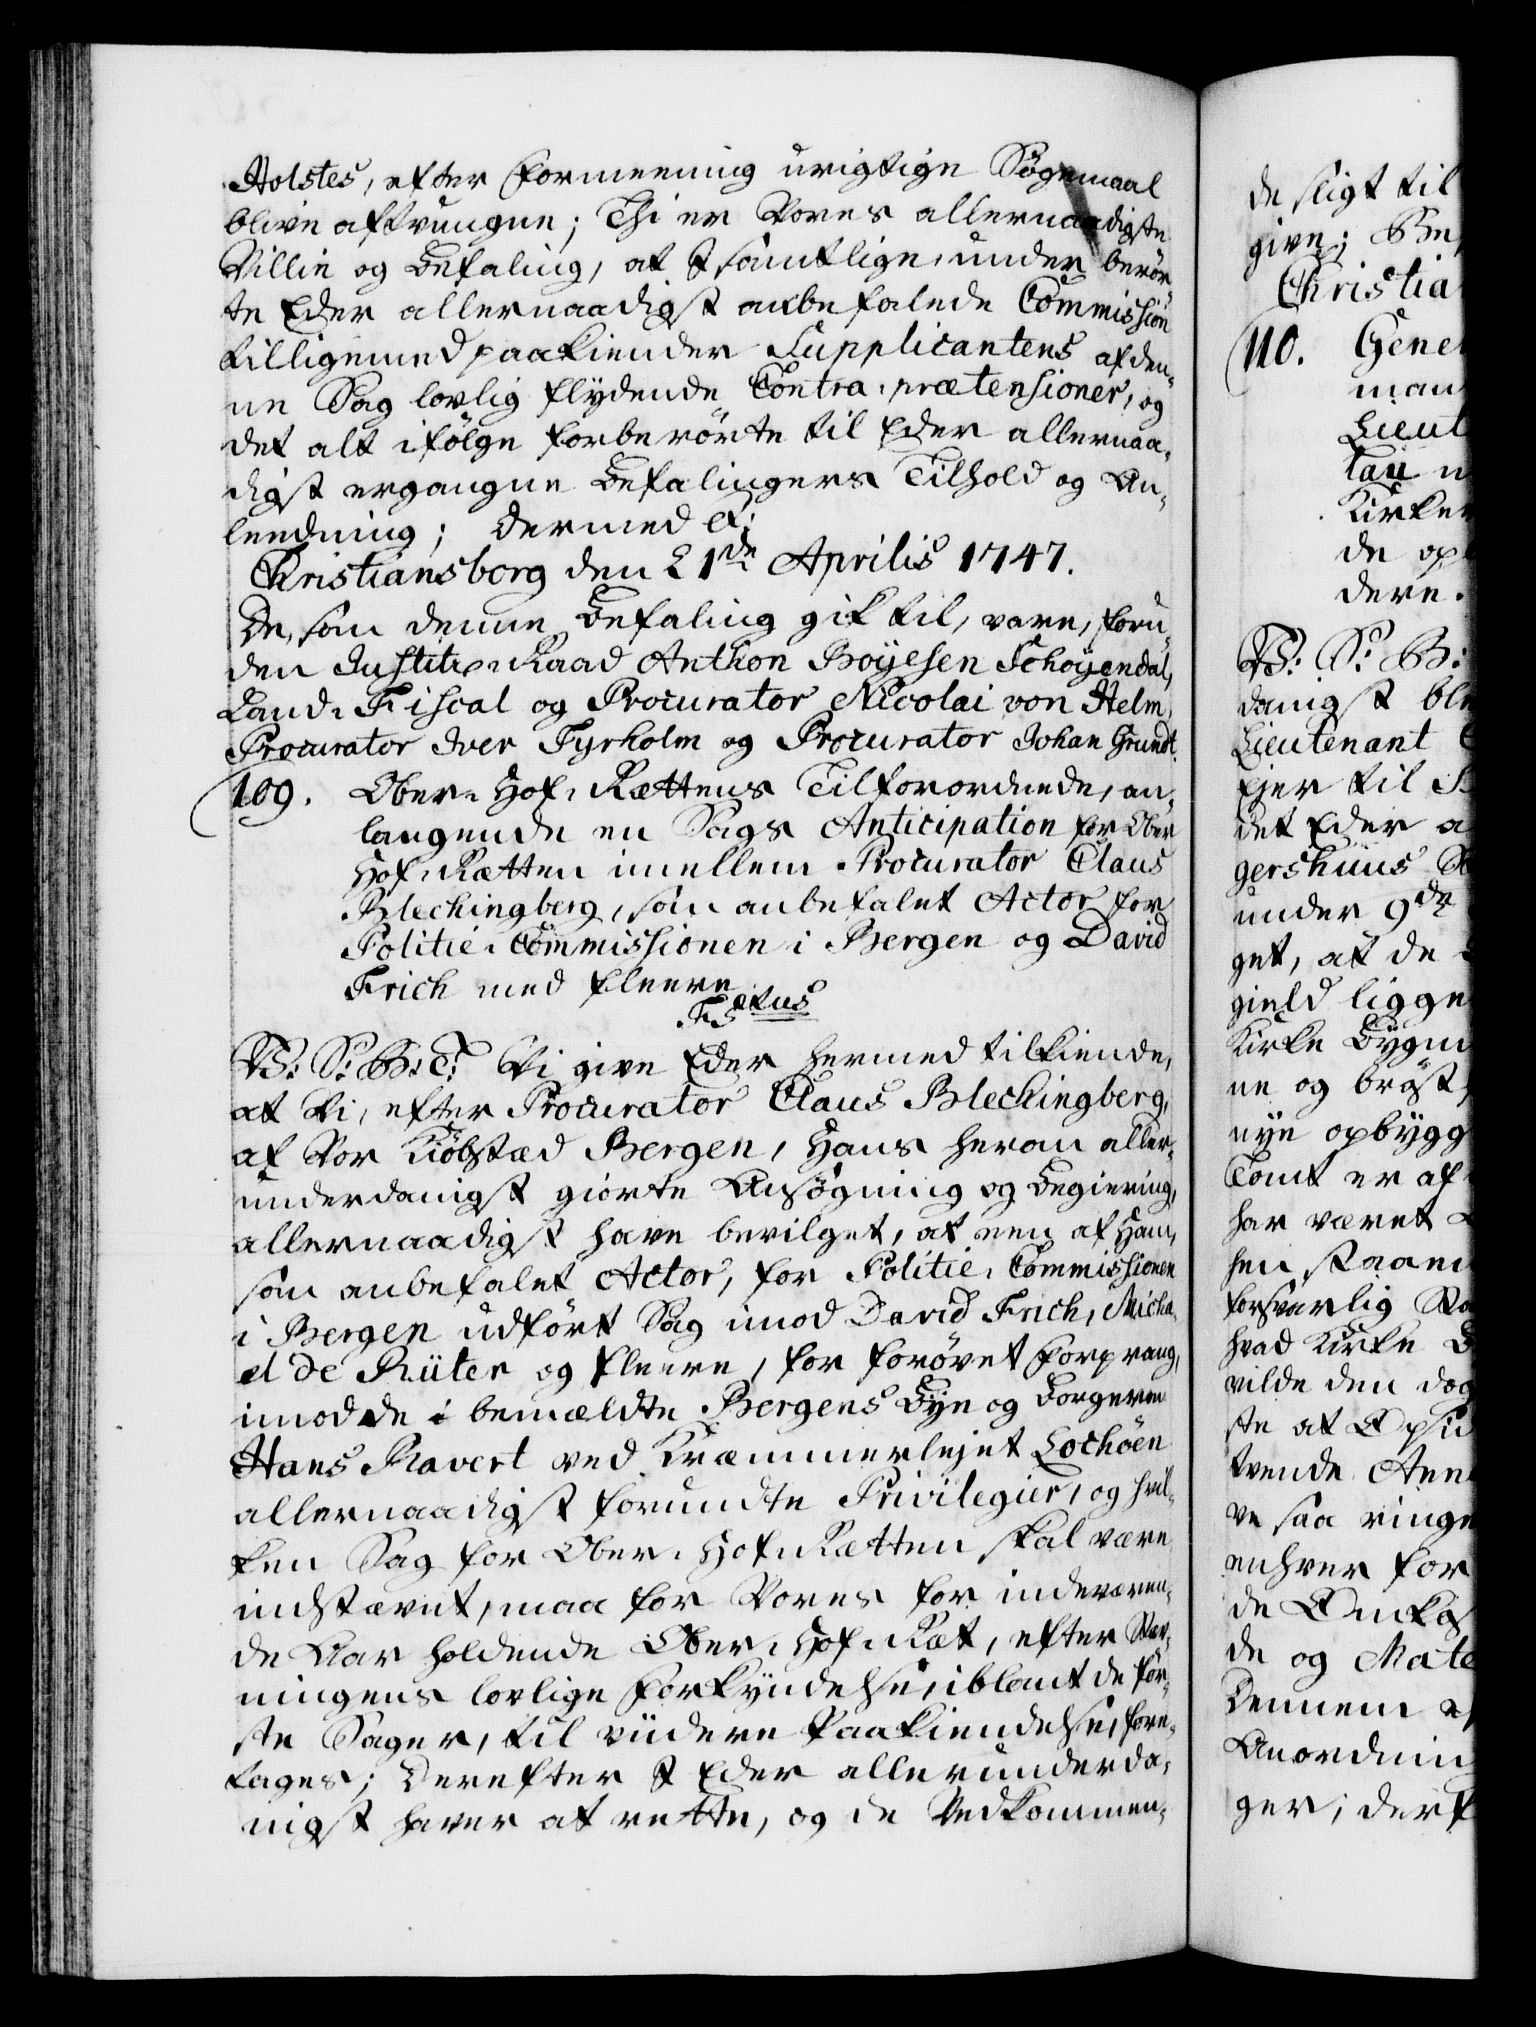 Holstes, efter Formeening urigtige Søgemaal
blive aftvungne; Thi er Vores allernaadigste
Villie og Befaling, at I samtlige, under berør-
te Eder allernaadigst anbefalede Commission
tilligemed paakiender Supplicantens af den-
ne Sag lovlig flydende Contra-prætensioner, og
det alt ifølge forberørte til Eder allernaa-
digst ergangne Befalingers Tilhold og An-
leedning; dermed &c:
Christiansborg den 21de Aprilis 1747.
De, som denne Befaling gik til, vare, foru-
den Justitz-Raad Anthon Boyesen Schøyendal,
Land-Fiscal og Procurator Nicolai von Helm,
Procurator Iver Fyrholm og Procurator Johan Grundt.
109. Ober-Hof-Rettens Tilforordnede, an-
langende en Sags Anticipation for Ober
Hof-Retten imellem Procurator Claus
Blechingberg, som anbefalet Actor for
Politie-Commissionen i Bergen og David
Frich med fleere
V: S: G: T: Vi give Eder hermed tilkiende,
at Vi, efter Procurator Claus Blechingberg,
af Vor Kiøbstæd Bergen, Hans herom aller-
underdanigst giorte Ansøgning og Begiering,
allernaadigst have bevilget, at een af Ham,
som anbefalet Actor, for Politie-Commissionen
i Bergen udført Sag imod David Frich, Micha-
el de Rüter og fleere, for forøvet Forprang,
imod de i bemældte Bergens Bye og Borgeren
Hans Ravert ved Kræmmerlejet Lochøen
allernaadigst forundte Privilegier, og hvil-
ken Sag for Ober-Hof-Retten skal være
indstævnt, maa for Vores for indeværen-
de Aar holdende Ober-Hof-Ret, efter Stæv-
ningens lovlige Forkyndelse, iblant de før-
ste Sager, til viidere Paakiendelse, fore-
tages; Derefter I Eder allerunderda-
nigst haver at rette, og de Vedkommen-
de sligt til
give;
Christia
110. Gene
man
Lieut
Kirke
de op
dere.
V: S: G:
danigst bl
Lieutenant
Ejer til
det Eder a
gershuus
under 9de
get, at de
gield ligge
Kirke Bygn
ne og brøst
nye opbygg
Tomt er af
har været
hen staaen
forsvarlig
hvad Kirke
vilde den dog
ste at
tvende
ve saa ringe
enhver for
de
de og Mate
Dennem
Anordnin
ger; derf